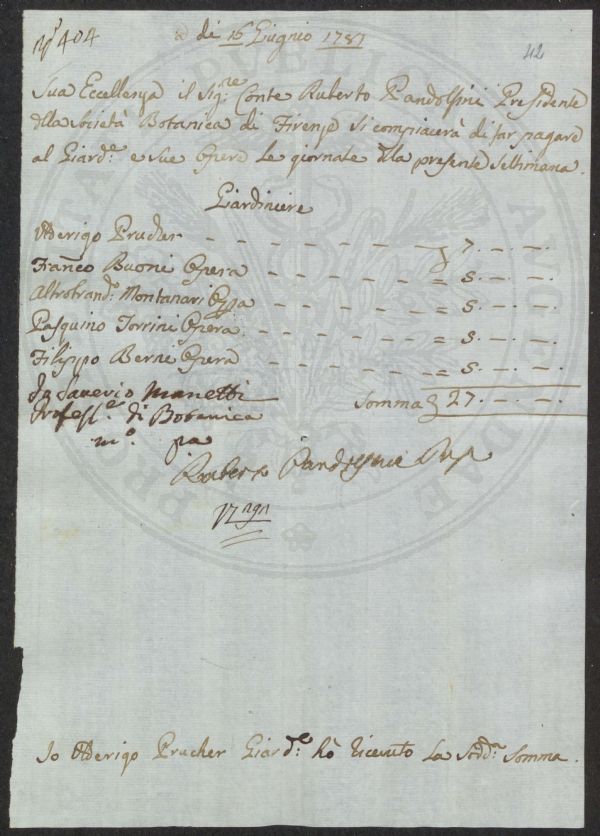 N.° 404
di 16 Giugno 1781
42
Sua Eccellenza il Sig.re Conte Ruberto Pandolfini Presidente
della Società Botanica di Firenze si compiacerà di far pagare
al Giard.e e sue Opere le giornate della presente Settimana.
Giardiniere
Uderigo Prucher - - - - - - 7. -. -.
Franco Buoni Opera - - - - - - = 5. -. -.
Aldobrand. Montanari Opera - - - - - - = 5. -. -.
Pasquino Torrini Opera - - - - - - = 5. -. -.
Filippo Berni Opera - - - - - - = 5. -. -.
Somma 27. -. -.
Io Saverio Manetti
Profess.e di Botanica
m.o pa
Ruberto Pandolfini Pres.
Io Uderigo Prucher Giard.e hò ricevuto la Sord.a Somma.
PVBLICAE